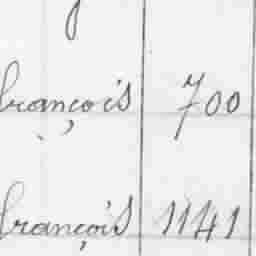 françois 700
françois 1141